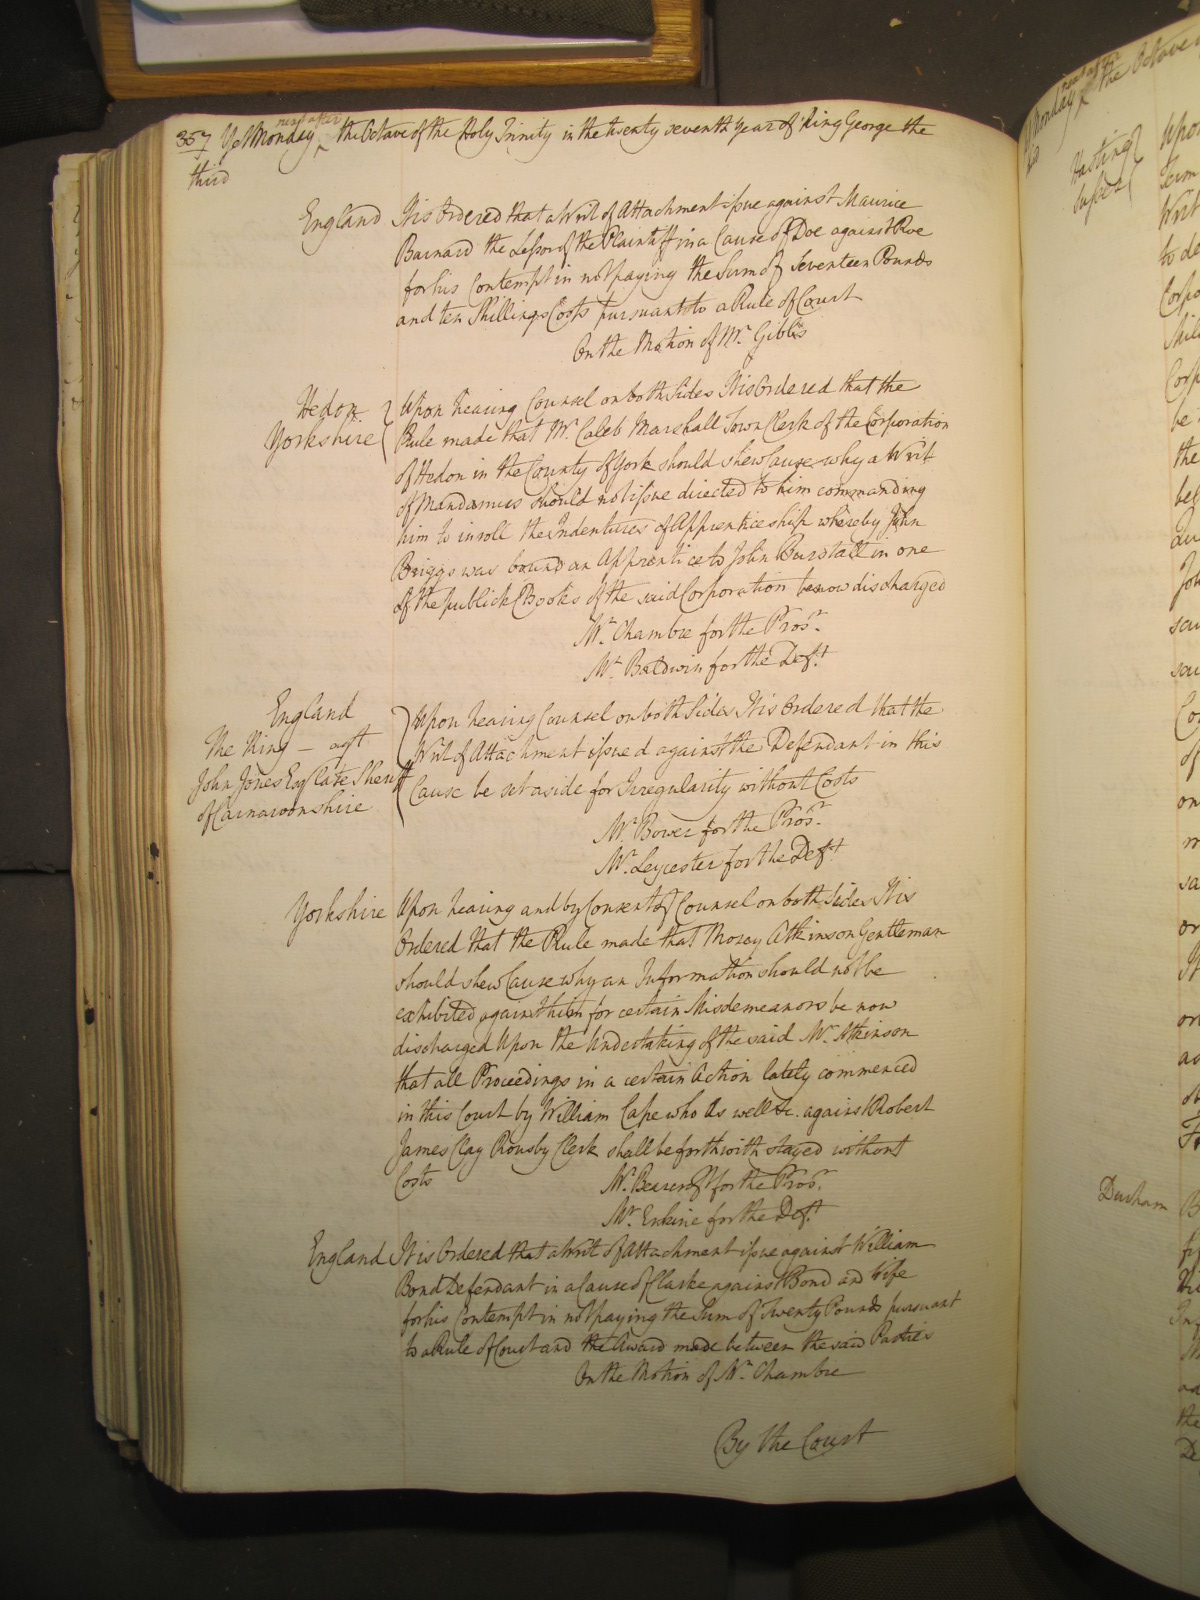 357 Yet Monday next after the Octave of the Holy Trinity in the twenty seventh Year of King George the
third
England It is Ordered that a Writ of Attachment issue against Maurice
Barnard the Lessor of the Plaintiff in a Cause of Doe against Roe
for his Contempt in not paying the Sum of Seventeen Pounds
and ten Shillings Costs pursuant to a Rule of Court
On the Motion of Mr. Gibbs
Hedon
Yorkshire
Upon hearing Counsel on both Sides It is Ordered that the
Rule made that Mr. Caleb Marshall Town Clerk of the Corporation
of Hedon in the County of York should shew Cause why a Writ
of Mandamus should not issue directed to him commanding
him to inroll the Indentures of Apprenticeship whereby John
Briggs was bound an Apprentice to John Burstall in one
of the publick Books of the said Corporation be now discharged
Mr. Chambre for the Pros.r
Mr. Baldwin for the Def.t
England
The King - agst
John Jones Esq late Sheriff
of Carnarvonshire
Upon hearing Counsel on both Sides It is Ordered that the
Writ of Attachment issued against the Defendant in this
Cause be set aside for Irregularity without Costs
Mr. Bower for the Pros.r
Mr. Leycester for the Def.t
Yorkshire Upon hearing and by Consent of Counsel on both Sides It is
Ordered that the Rule made that Mosey Atkinson Gentleman
should shew Cause why an Information should not be
exhibited against him for certain Misdemeanors be now
discharged Upon the Undertaking of the said Mr. Atkinson
that all Proceedings in a certain Action lately commenced
in this Court by William Cape who as well &c. against Robert
James Clay Rousby Clerk shall be forthwith stayed without
Costs
Mr. Bearcroft for the Pros.r
Mr. Erskine for the Def.t
England It is Ordered that a Writ of Attachment issue against William
Bond Defendant in a Cause of Clarke against Bond and Wife
for his Contempt in not paying the Sum of Twenty Pounds pursuant
to a Rule of Court and the Award made between the said Parties
On the Motion of Mr. Chambre
By the Court
Monday next after the Octave
Hasting
Sussex
Upon
Writ
to de
Durham